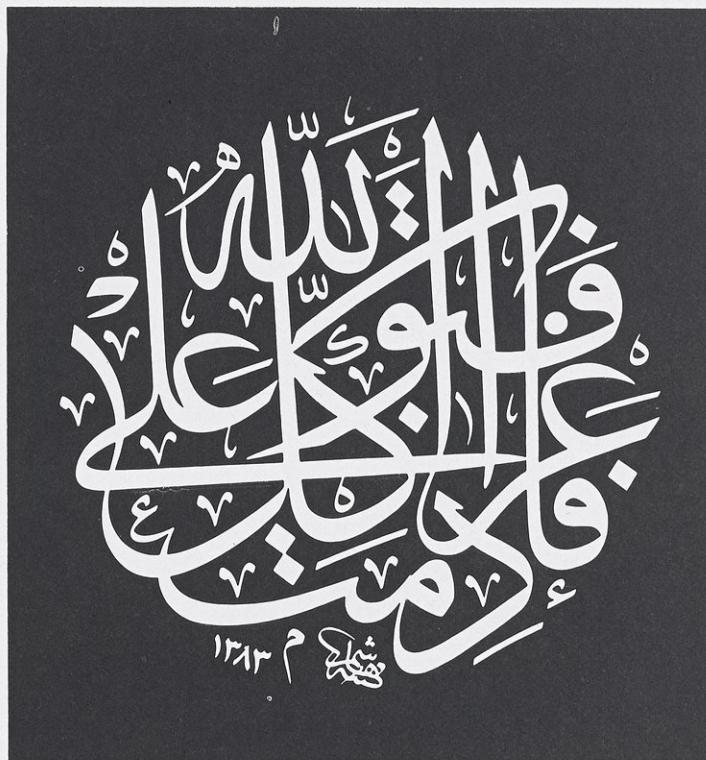 فَإِذَا عَزَمْتَ فَتَوَكَّلْ عَلَى اللَّهِ
هاشم
م ١٣٨٣